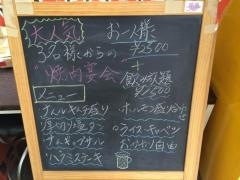 大人気
3名様からの
焼肉宴会
お一人様
¥2500
+
飲み放題
¥1500
メニュー
ナムル キムチ盛り
厚切り塩タン
サムギョプサル
ハラミステーキ
ホルモン盛り合せ
ライス キャベツ
おかわり自由